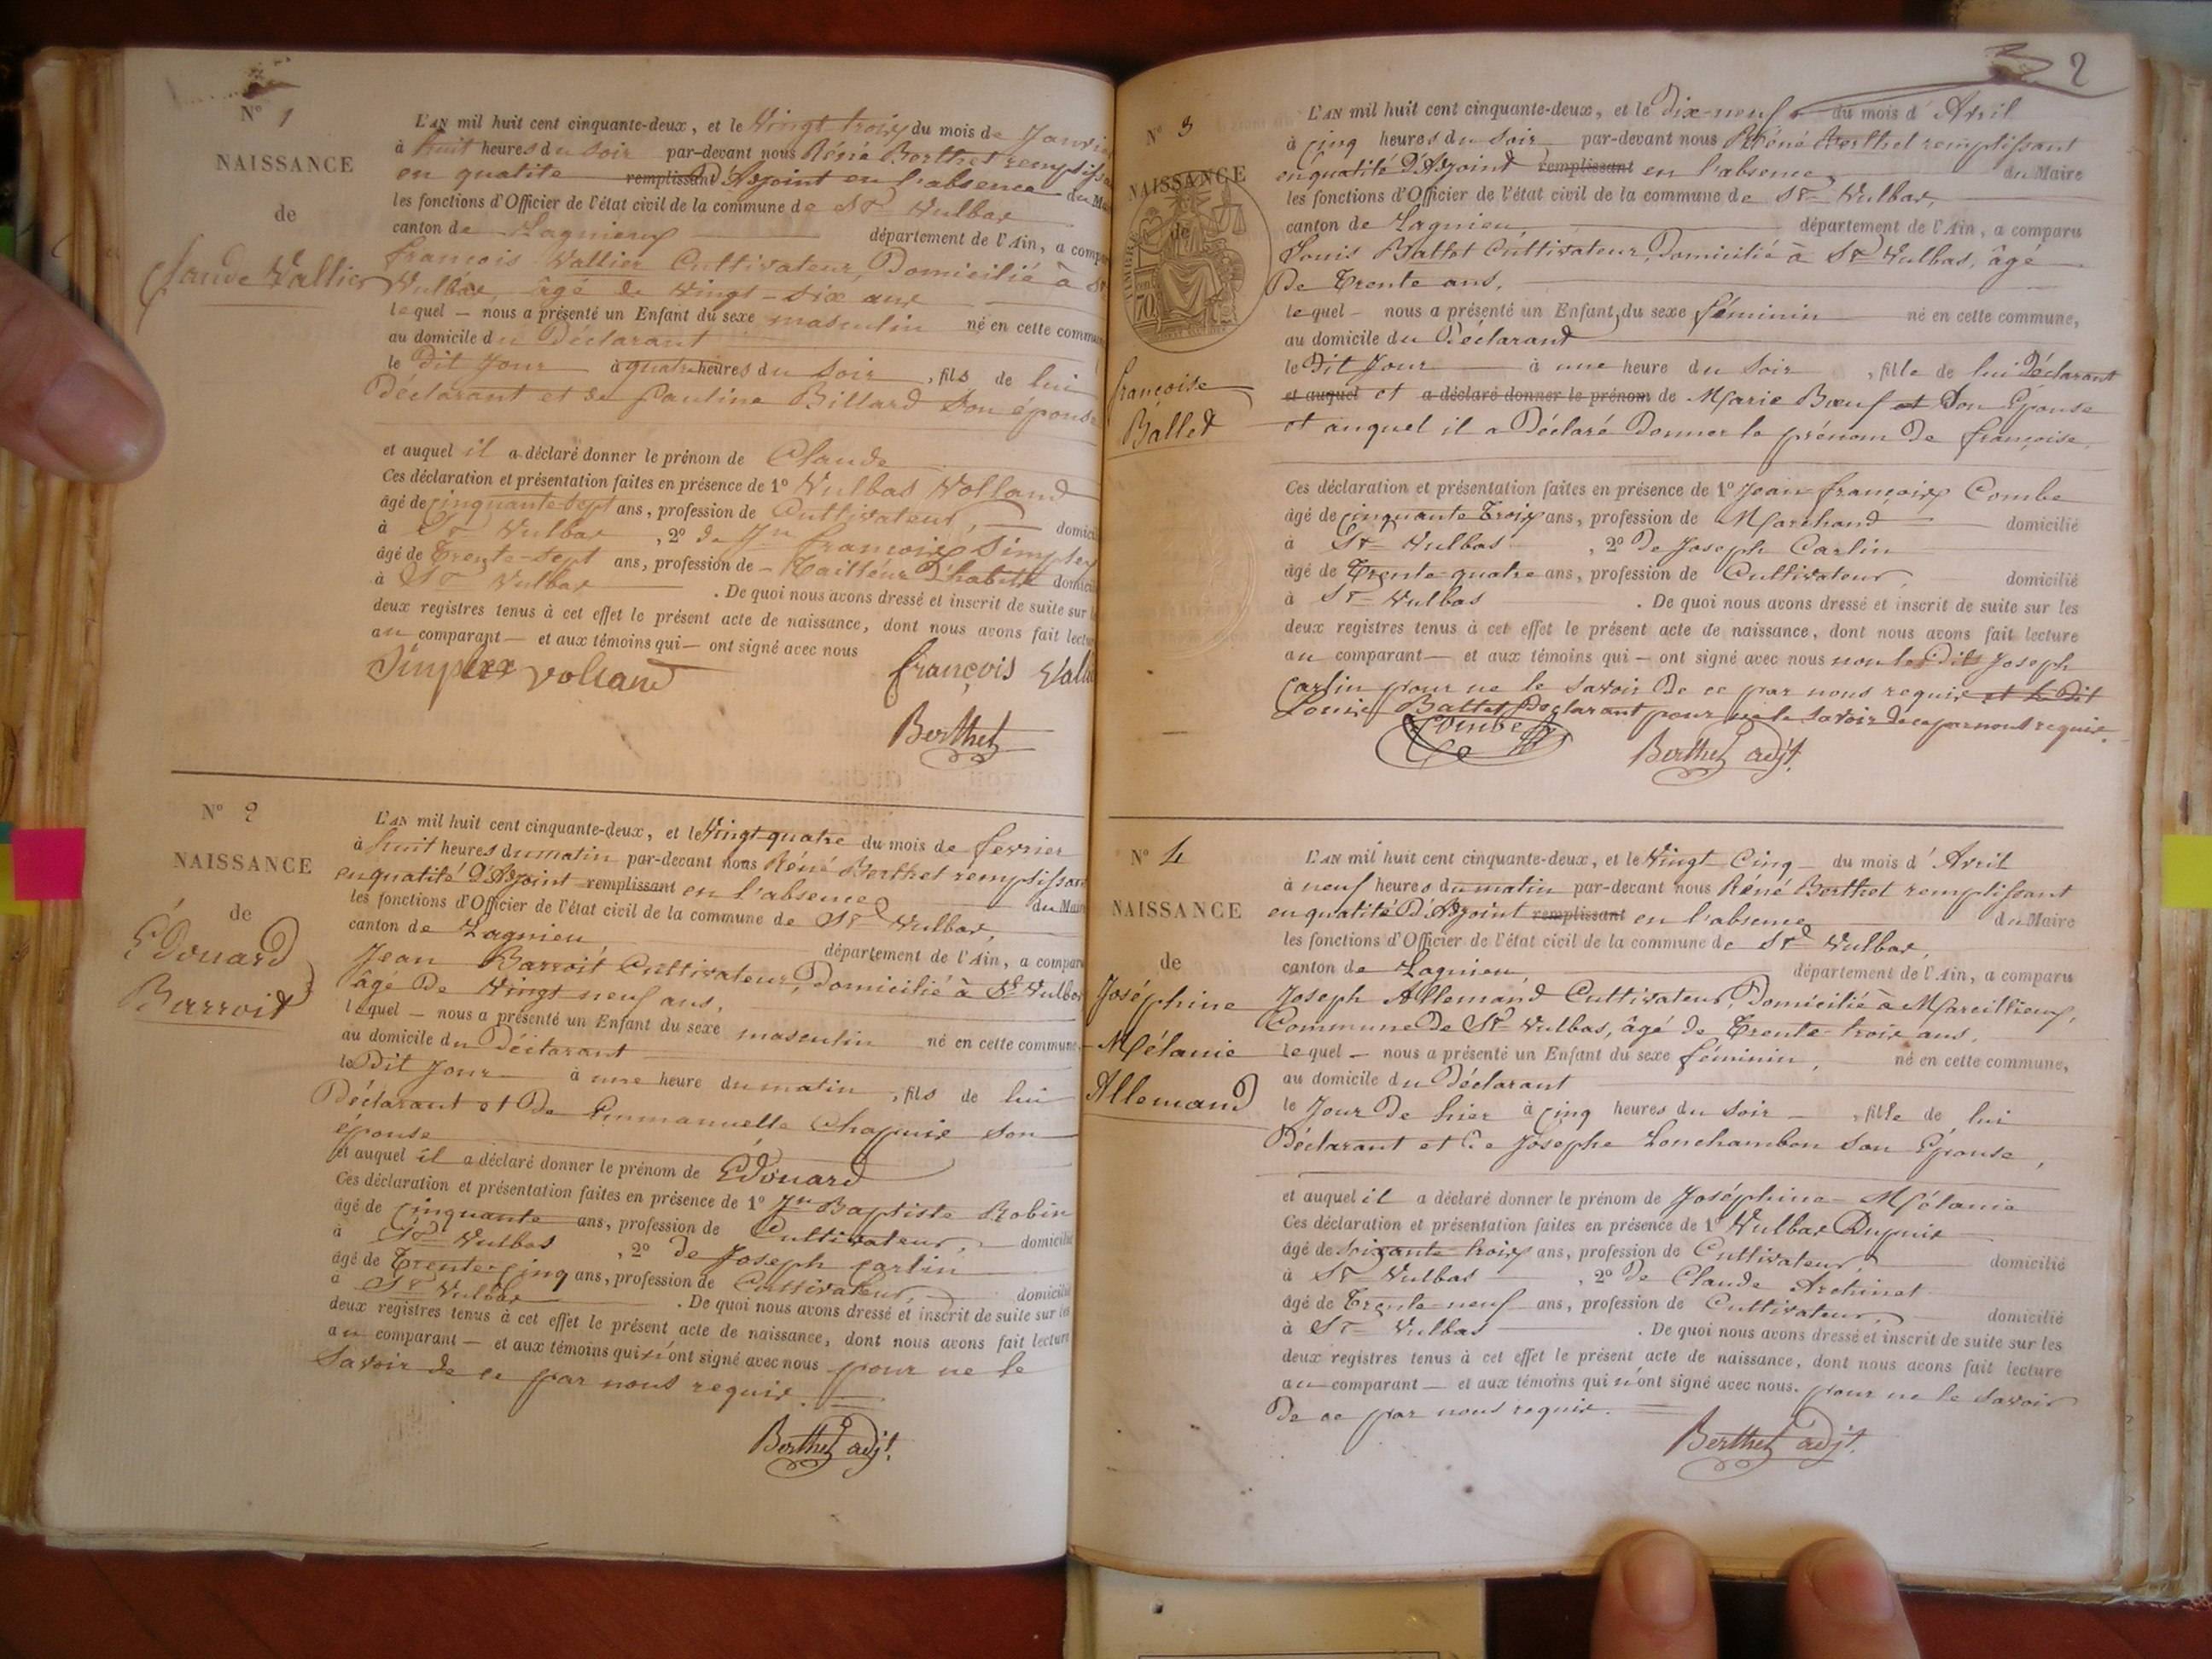 N° 1
NAISSANCE
de
Claude Vallier
L'AN mil huit cent cinquante-deux, et le Vingt trois du mois de Janvier
à huit heures du soir par-devant nous Réné Berthet remplissant
en qualité remplissant D'Adjoint en l'absence du Maire
les fonctions d'Officier de l'état civil de la commune de St Vulbas
canton de Lagnieu département de l'Ain, a comparu
françois Vallier Cultivateur, Domicilié à St
Vulbas, âgé de Vingt-six ans
lequel nous a présenté un Enfant du sexe masculin né en cette commune
au domicile du Déclarant
le Dit Jour à quatre heures du soir, fils de lui
Déclarant et de Pauline Billard Son épouse
et auquel il a déclaré donner le prénom de Claude
Ces déclaration et présentation faites en présence de 1° Vulbas Volland
âgé de cinquante sept ans, profession de Cultivateur, domicilié
à St Vulbas, 2° de Jn françois Simplex
âgé de Trente-sept ans, profession de Tailleur D'habits domicilié
à St Vulbas. De quoi nous avons dressé et inscrit de suite sur les
deux registres tenus à cet effet le présent acte de naissance, dont nous avons fait lecture
au comparant et aux témoins qui ont signé avec nous
Simplex Volland françois Vallier
Berthet
N° 2
NAISSANCE
de
Edouard
Barroit
L'AN mil huit cent cinquante-deux, et le Vingt quatre du mois de fevrier
à huit heures du matin par-devant nous Réné Berthet remplissant
en qualité D'Adjoint remplissant en l'absence du Maire
les fonctions d'Officier de l'état civil de la commune de St Vulbas,
canton de Lagnieu département de l'Ain, a comparu
Jean Barroit Cultivateur, Domicilié à St Vulbas
âgé De Vingt neuf ans,
lequel nous a présenté un Enfant du sexe masculin né en cette commune,
au domicile du Déclarant
le Dit Jour à une heure du matin, fils de lui
Déclarant et De Emmanuelle Chapuis Son
épouse
et auquel il a déclaré donner le prénom de Edouard
Ces déclaration et présentation faites en présence de 1° Jn Baptiste Robin
âgé de cinquante ans, profession de Cultivateur, domicilié
à St Vulbas, 2° de Joseph Carlin
âgé de Trente-cinq ans, profession de Cultivateur, domicilié
à St Vulbas. De quoi nous avons dressé et inscrit de suite sur les
deux registres tenus à cet effet le présent acte de naissance, dont nous avons fait lecture
au comparant et aux témoins qui n'ont signé avec nous pour ne le
Savoir de ce par nous requis.
Berthet adjt.
2
N° 3
NAISSANCE
de
françoise
Ballet
L'AN mil huit cent cinquante-deux, et le Dix-neuf du mois d'Avril
à cinq heures du soir par-devant nous Réné Berthet remplissant
en qualité D'Adjoint remplissant en l'absence du Maire
les fonctions d'Officier de l'état civil de la commune de St Vulbas,
canton de Lagnieu, département de l'Ain, a comparu
Louis Ballet Cultivateur, Domicilié à St Vulbas, âgé
De Trente ans,
lequel nous a présenté un Enfant du sexe féminin né en cette commune,
au domicile du Déclarant
le Dit Jour à une heure du soir, fille de lui Déclarant
et auquel et a déclaré donner le prénom de Marie Bœuf et Son Epouse
et auquel il a Déclaré Donner le prénom De françoise,
Ces déclaration et présentation faites en présence de 1° Jean françois Combe
âgé de cinquante Trois ans, profession de Marchand domicilié
à St Vulbas, 2° de Joseph Carlin
âgé de Trente-quatre ans, profession de Cultivateur, domicilié
à St Vulbas. De quoi nous avons dressé et inscrit de suite sur les
deux registres tenus à cet effet le présent acte de naissance, dont nous avons fait lecture
au comparant et aux témoins qui ont signé avec nous non les Dits Joseph
Carlin pour ne le Savoir De ce par nous requis et le Dit
Louis Ballet Déclarant pour ne le Savoir de ce par nous requis.
Combe Berthet adjt.
N° 4
NAISSANCE
de
Joséphine
Mélanie
Allemand
L'AN mil huit cent cinquante-deux, et le Vingt Cinq du mois d'Avril
à neuf heures du matin par-devant nous Réné Berthet remplissant
en qualité D'Adjoint remplissant en l'absence du Maire
les fonctions d'Officier de l'état civil de la commune de St Vulbas,
canton de Lagnieu, département de l'Ain, a comparu
Joseph Allemand Cultivateur, Domicilié à Marcillieux,
Commune De St Vulbas, âgé de Trente-trois ans,
lequel nous a présenté un Enfant du sexe féminin, né en cette commune,
au domicile du Déclarant
le Jour De hier à cinq heures du soir, fille de lui
Déclarant et De Josephe Lonchambon Son Epouse,
et auquel il a déclaré donner le prénom de Joséphine-Mélanie
Ces déclaration et présentation faites en présence de 1° Vulbas Dupuis
âgé de soixante trois ans, profession de Cultivateur, domicilié
à St Vulbas, 2° de Claude Archinet
âgé de Trente-neuf ans, profession de Cultivateur, domicilié
à St Vulbas. De quoi nous avons dressé et inscrit de suite sur les
deux registres tenus à cet effet le présent acte de naissance, dont nous avons fait lecture
au comparant et aux témoins qui n'ont signé avec nous. pour ne le Savoir
De ce par nous requis.
Berthet adjt.